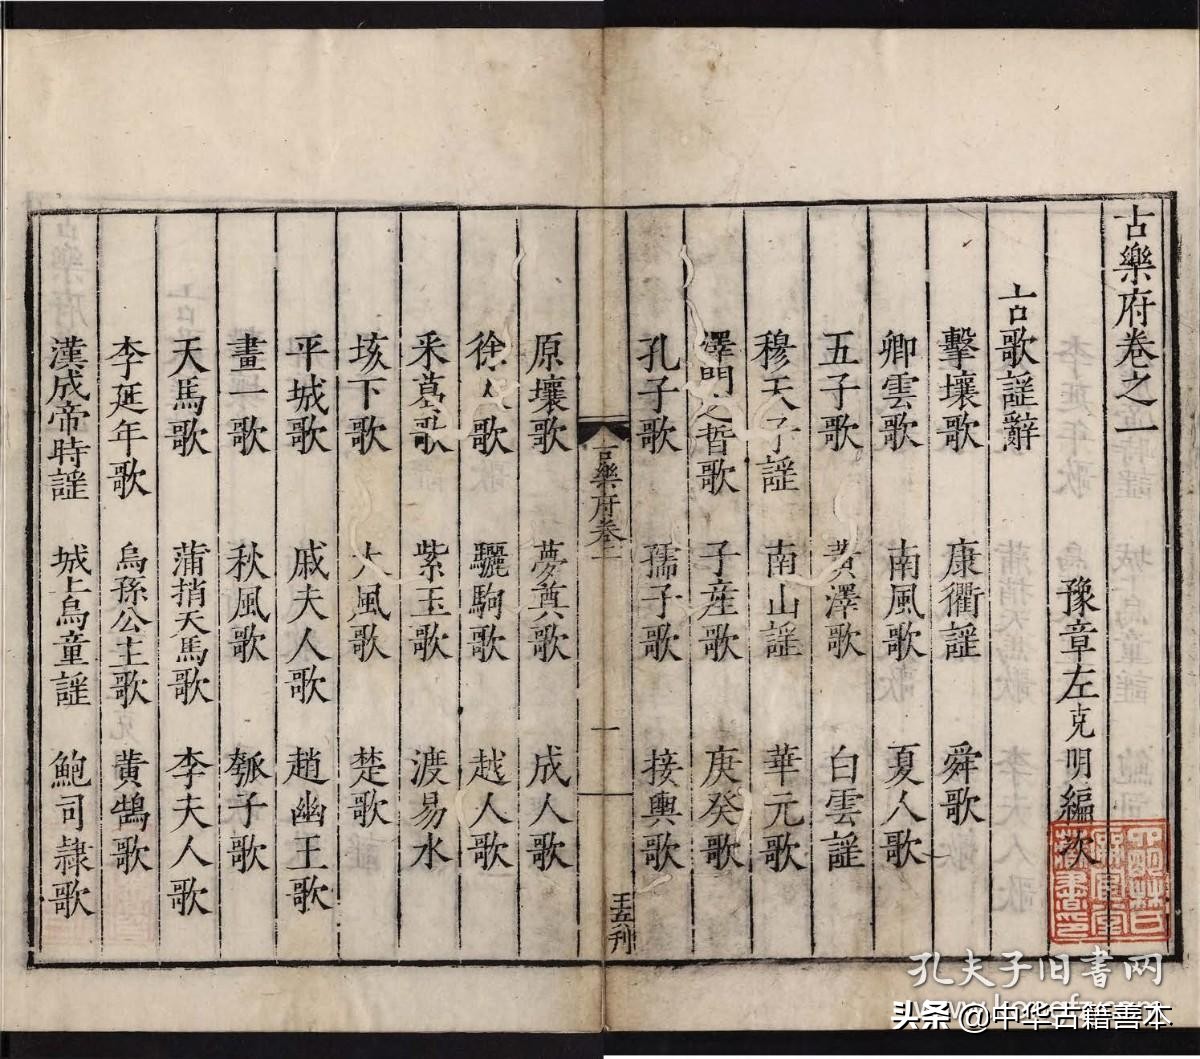 古樂府卷之一
豫章左克明編次
古歌謡辭
擊壤歌 康衢謡 舜歌
卿雲歌 南風歌 夏人歌
五子歌 黄澤歌 白雲謡
穆天子謡 南山謡 華元歌
澤門之晳歌 子産歌 庚癸歌
孔子歌 孺子歌 接輿歌
古樂府卷一
一
王五刊
原壤歌 夢奠歌 成人歌
徐人歌 驪駒歌 越人歌
采葛歌 紫玉歌 渡易水
垓下歌 大風歌 楚歌
平城歌 戚夫人歌 趙幽王歌
畫一歌 秋風歌 瓠子歌
天馬歌 蒲捎天馬歌 李夫人歌
李延年歌 烏孫公主歌 黄鵠歌
漢成帝時謡 城上烏童謡 鮑司隸歌
孔夫子旧书网
头条 @中华古籍善本